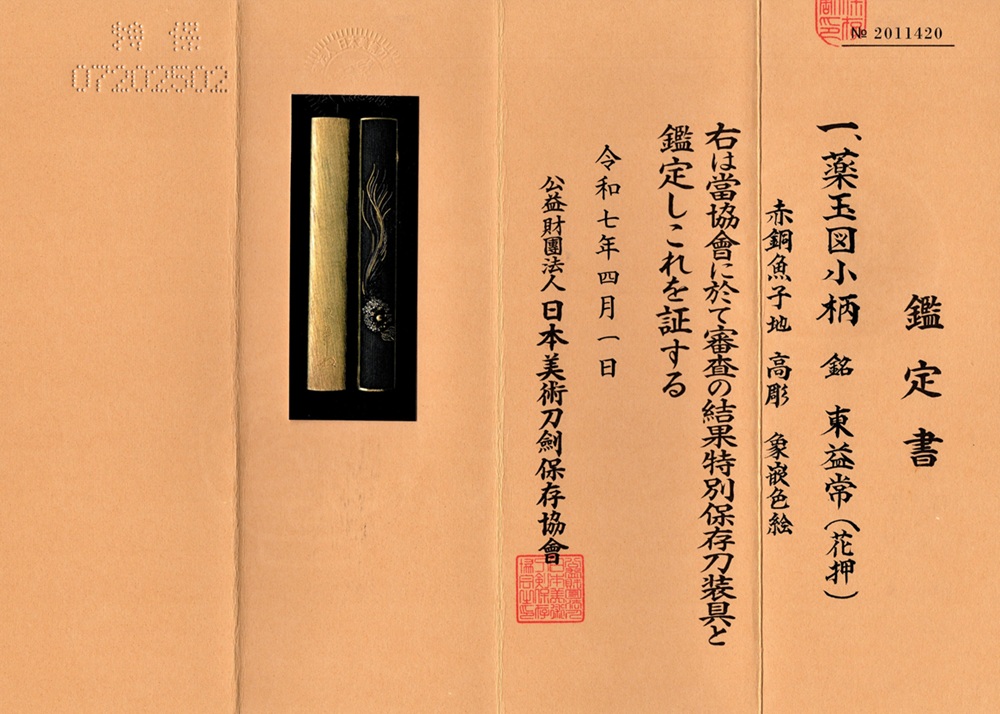 № 2011420
鑑定書
一、薬玉図小柄 銘 東益常(花押)
赤銅魚子地 高彫 象嵌色絵
右は當協會に於て審査の結果特別保存刀装具と
鑑定しこれを証する
令和七年四月一日
公益財團法人 日本美術刀劍保存協會
特保
07202502